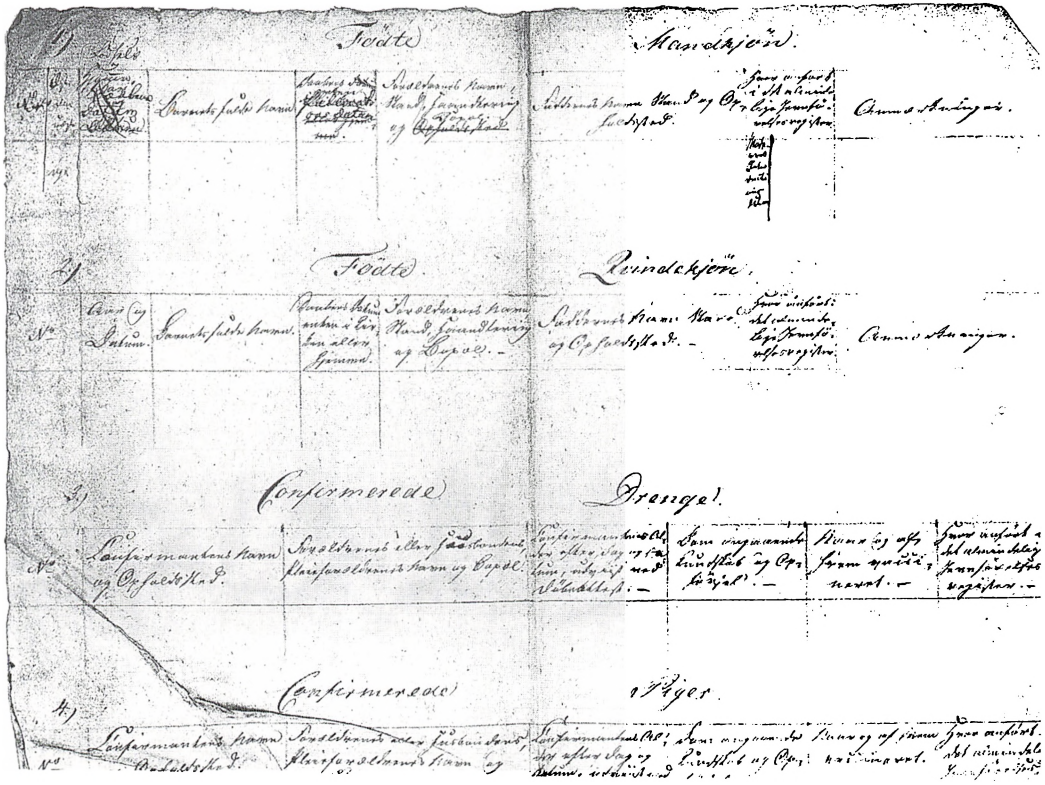 1)
Födte
Mandkjön.
Barnets fulde Navn
Forældrenes Navn,
Stand, Haandtering
og Opholdssted.
Faddernes Navn Stand og Op-
holdssted.
Hvor anført
i det alminde-
lige Jevnfö-
relsesregister
Anmærkninger.
2)
Födte.
Qvindekjön.
No
Aar og
Datum.
Barnets fulde Navn.
Daabens Datum
enten i Kir-
ken eller
hjemme.
Forældrenes Navn
Stand, Haandtering
og Bopæl. -
Faddernes Navn Stand
og Opholdssted. -
Hvor anført i
det alminde-
lige Jevnfö-
relsesregister
Anmærkninger.
3.)
Confirmerede
Drenge.
No
Confirmantens Navn
og Opholdssted.
Forældrenes eller Huusbondens,
Pleieforældrenes Navn og Bopæl.
Confirmandens Al-
der efter Dag og Da-
tum, udviist ved
Döbeattest. -
Dom angaaende
Kundskab og Op-
försel. -
Naar og af
hvem vacci-
neret. -
Hvor anfört i
det almindelig
Jevnförelses
register. -
4.)
Confirmerede
Piger.
No
Confirmantens Navn
Opholdssted.
Forældrenes eller Husbondens,
Pleieforældrenes Navn og
Confirmandens Al-
der efter Dag og
Datum, udviist ved
Dom angaaende
Kundskab og Op-
Naar og af hvem
vaccineret.
Hvor anfört i
det almindelig